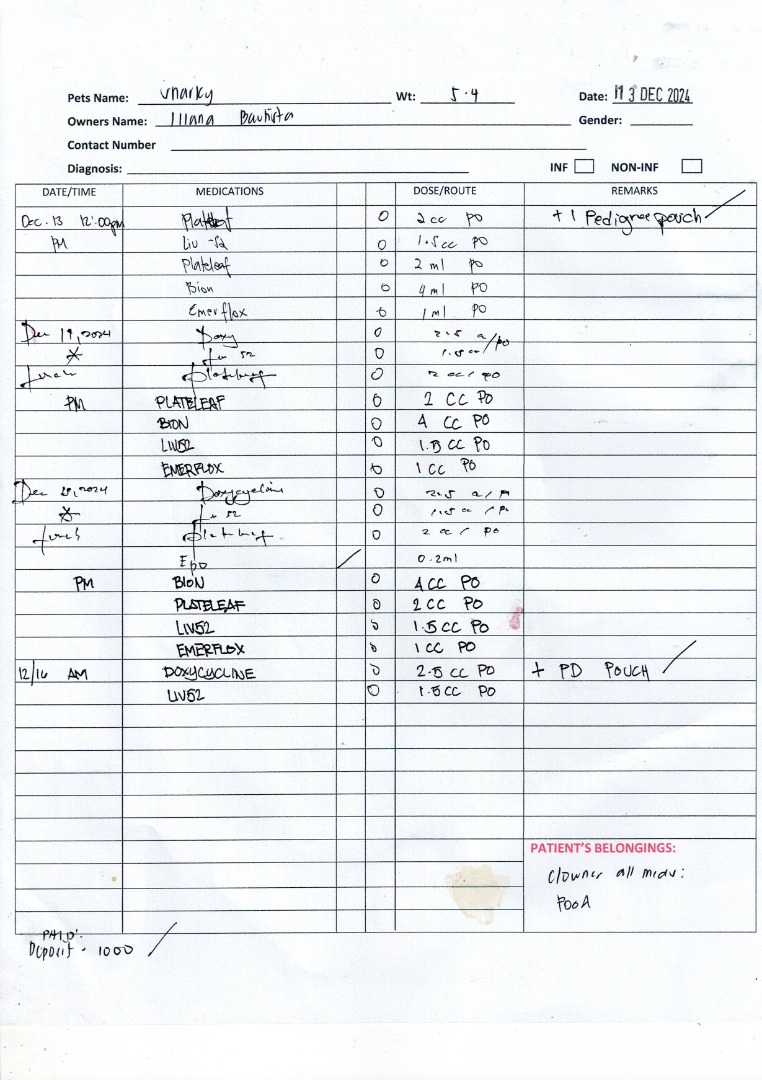 Pets Name: Vnarky Wt: 5.4 Date: 13 DEC 2024
Owners Name: Illana Bautista Gender:
Contact Number
Diagnosis: INF NON-INF
DATE/TIME MEDICATIONS DOSE/ROUTE REMARKS
Dec. 13 12:00pm Plateleaf O 2 cc PO + 1 Pedigree pouch
PM Liv-52 O 1.5 cc PO
Plateleaf O 2 ml PO
Bion O 4 ml PO
Emerflox O 1 ml PO
Doxy O 2.5 PO
52 O 1.5 cc/po
O 2 cc/po
PM PLATELEAF O 2 CC PO
BION O 4 CC PO
LIV52 O 1.5 CC PO
EMERFLOX O 1 CC PO
Doxycycline O 2.5
52 O 1.5 cc
O 2 cc/ po
Epo 0.2ml
PM BION O 4CC PO
PLATELEAF O 2CC PO
LIV52 O 1.5CC PO
EMERFLOX O 1CC PO
12/16 AM DOXYCYCLINE O 2.5CC PO + PD POUCH
LIV52 O 1.5CC PO
PATIENT'S BELONGINGS:
all meds:
PAID:
Deposit - 1000